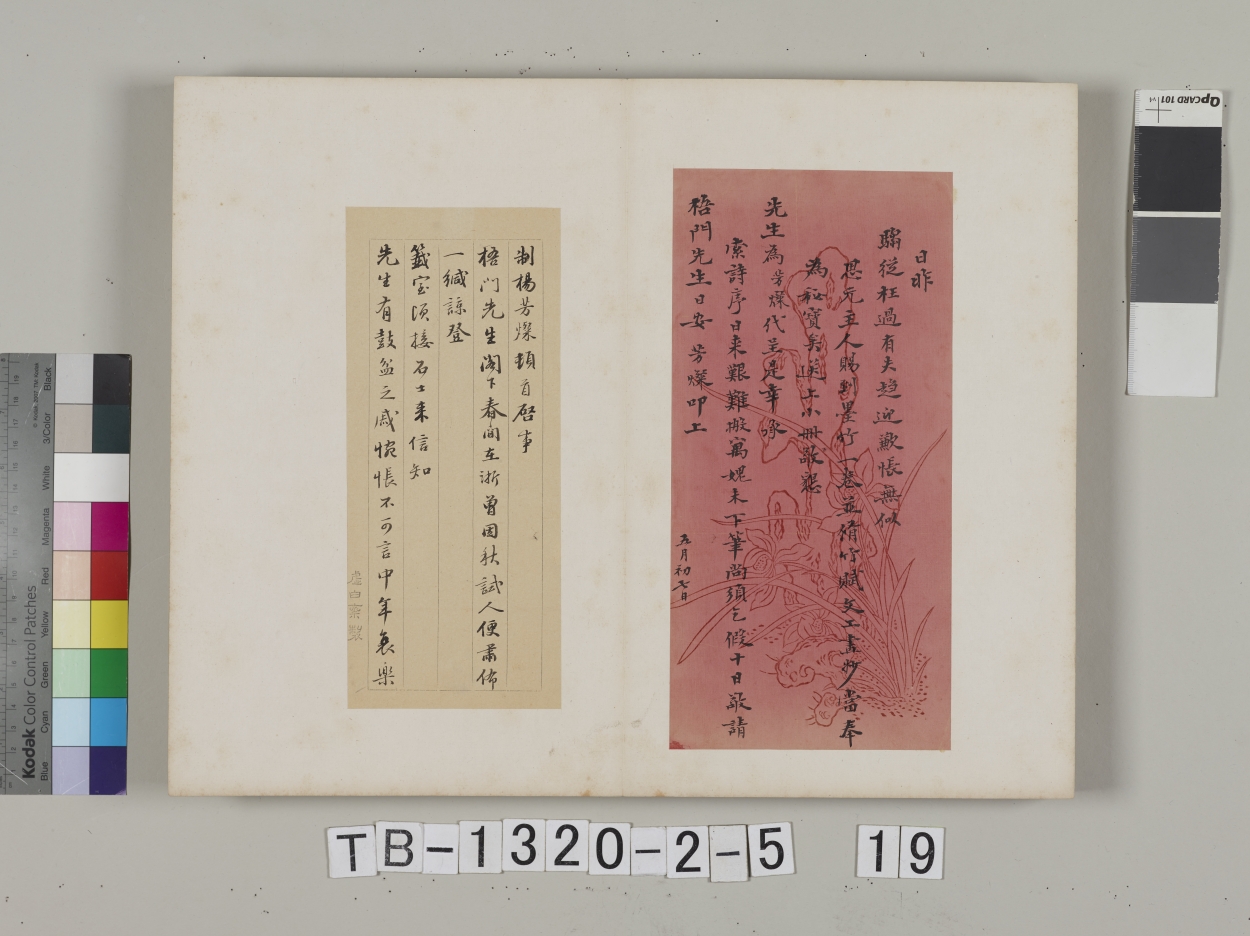 日昨
騶從枉過有失趨迎歉悵無似
棋元主人賜到墨竹一卷並脩竹賦文工畫妙當奉
為祕寶翁送上小冊敬懇
先生為芳燦代呈是幸承
索詩序日來艱難搬寓媿未下筆尚須乞假十日敬請
梧門先生日安 芳燦叩上
五月初七日
制楊芳燦頓首啓事
梧門先生閣下春間在浙曾因秋試人便肅佈
一緘諒登
籤室頃接石士來信知
先生有鼓盆之戚惋悵不可言中年哀樂
虛白齋製
TB-1320-2-5 19
QPCARD 101 v1
Kodak Color Control Patches
© Kodak, 2007 TM: Kodak
Blue Cyan Green Yellow Red Magenta White 3/Color Black